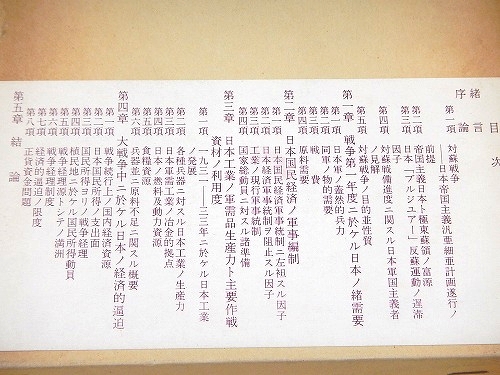 目次
緒言
序論
第一項 対蘇戦争
――日本帝国主義汎亜細亜計画遂行ノ
前提
第二項 帝国主義日本ト極東蘇領ノ富源
第三項 日本「アルジュアー」反蘇運動ノ遅滞
因子
第四項 対蘇戦備進度ニ関スル日本軍国主義者
ノ見解
第五項 対蘇戦争ノ目的並性質
第一章 戦争第一年度ニ於ケル日本ノ緒需要
第一項 日本軍ノ蓋然的兵力
第二項 同軍ノ物的需要
第三項 戦費
第四項 原料需要
第二章 日本国民経済ノ軍事編制
第一項 日本国民経済軍事統制ニ左袒スル因子
第二項 日本経済ノ軍事統制ヲ阻止スル因子
第三項 工業ノ現行軍事統制
第四項 国家総動員ニ対スル諸準備
第三章 日本工業ノ軍需品生産力ト主要作戦
資材ノ利用度
第一項 一九三一―三三年ニ於ケル日本工業
ノ発展
第二項 各種兵器ニ対スル日本工業ノ生産力
第三項 日本軍需工業ノ冶金的拠点
第四項 日本ノ燃料及動力資源
第五項 食糧資源
第六項 兵器並ニ原料不足ニ関スル概要
第四章 大戦争中ニ於ケル日本ノ経済的逼迫
第一項 戦争続行上ノ国内経済資源
第二項 日本国民所得ノ支出面
第三項 国民所得ト戦争経理
第四項 植民地ニ於ケル国民所得動員
第五項 戦争経理源トシテノ満洲
第六項 戦争経理制度
第七項 経済的逼迫ノ限度
第八項 正貨資金問題
第五章 結論